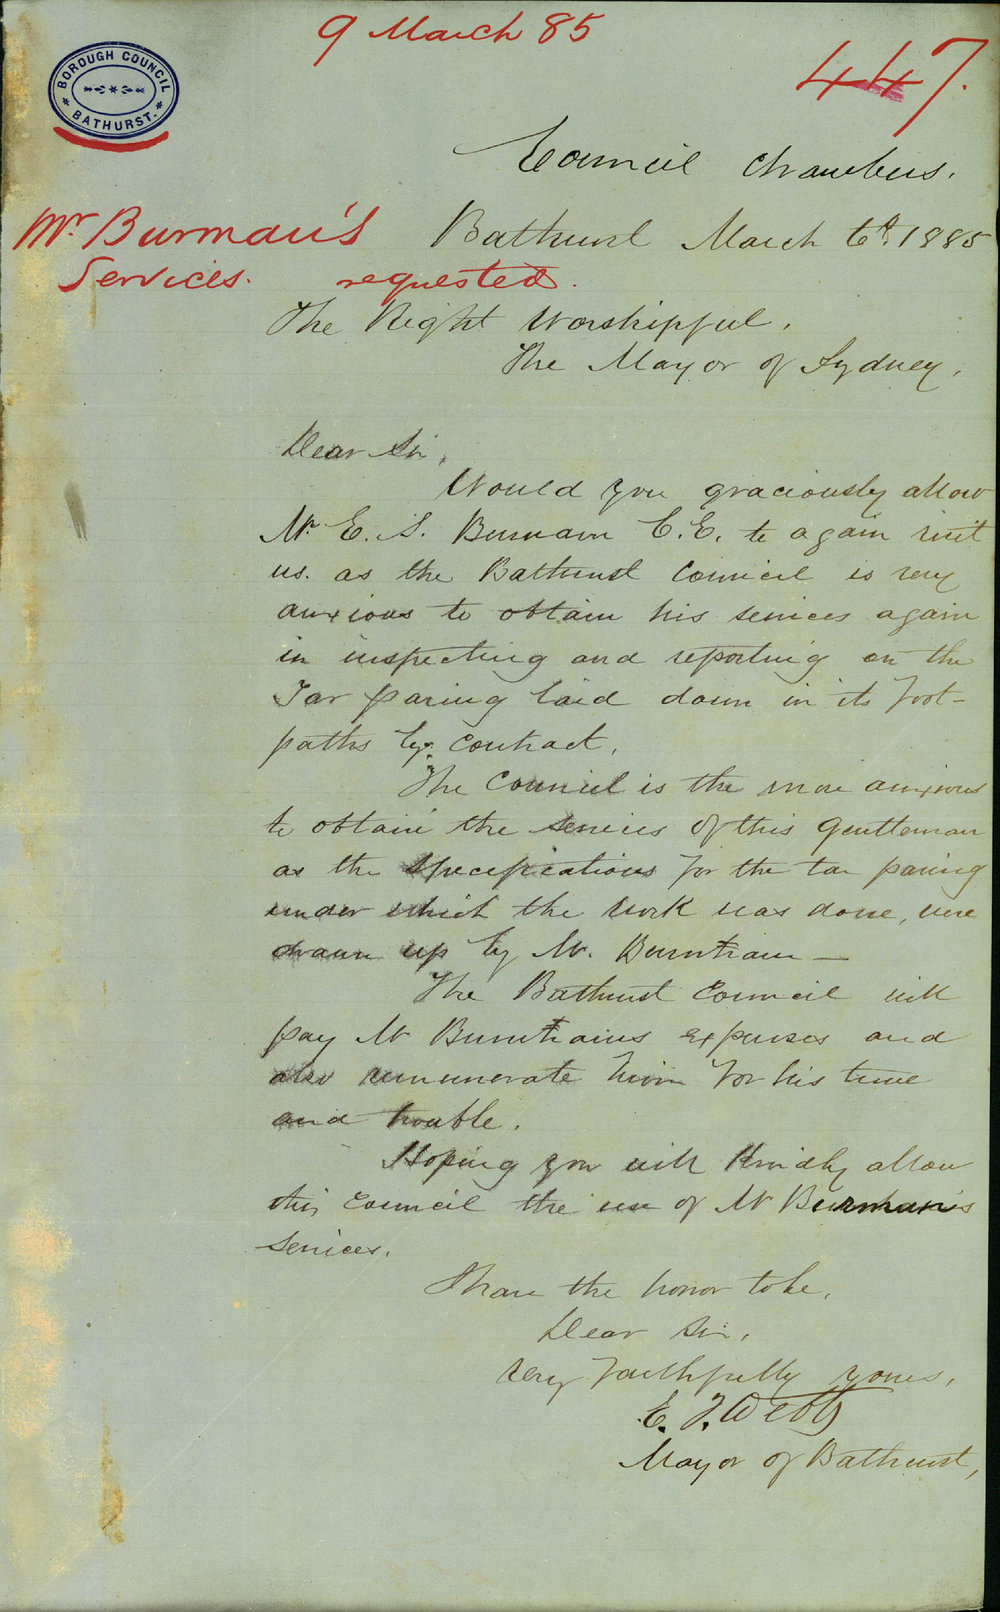 9 March 85
447.
BOROUGH COUNCIL
BATHURST.
Council Chambers.
Mr Burman's
Services. requested.
Bathurst March 6th 1885
The Right Worshipful,
The Mayor of Sydney,
Dear Sir,
Would you graciously allow
Mr. E. S. Burman C.E. to again visit
us. as the Bathurst Council is very
anxious to obtain his services again
in inspecting and reporting on the
Tar paving laid down in its foot-
paths by contract.
The Council is the more anxious
to obtain the services of this gentleman
as the specifications for the tar paving
under which the work was done, were
drawn up by Mr. Burntram —
The Bathurst Council will
pay Mr Burntrains expenses and
also remunerate him for his time
and trouble.
Hoping you will kindly allow
this Council the use of Mr Burman's
services.
I have the honor to be,
Dear Sir,
Very faithfully yours,
E. J. Webb
Mayor of Bathurst,